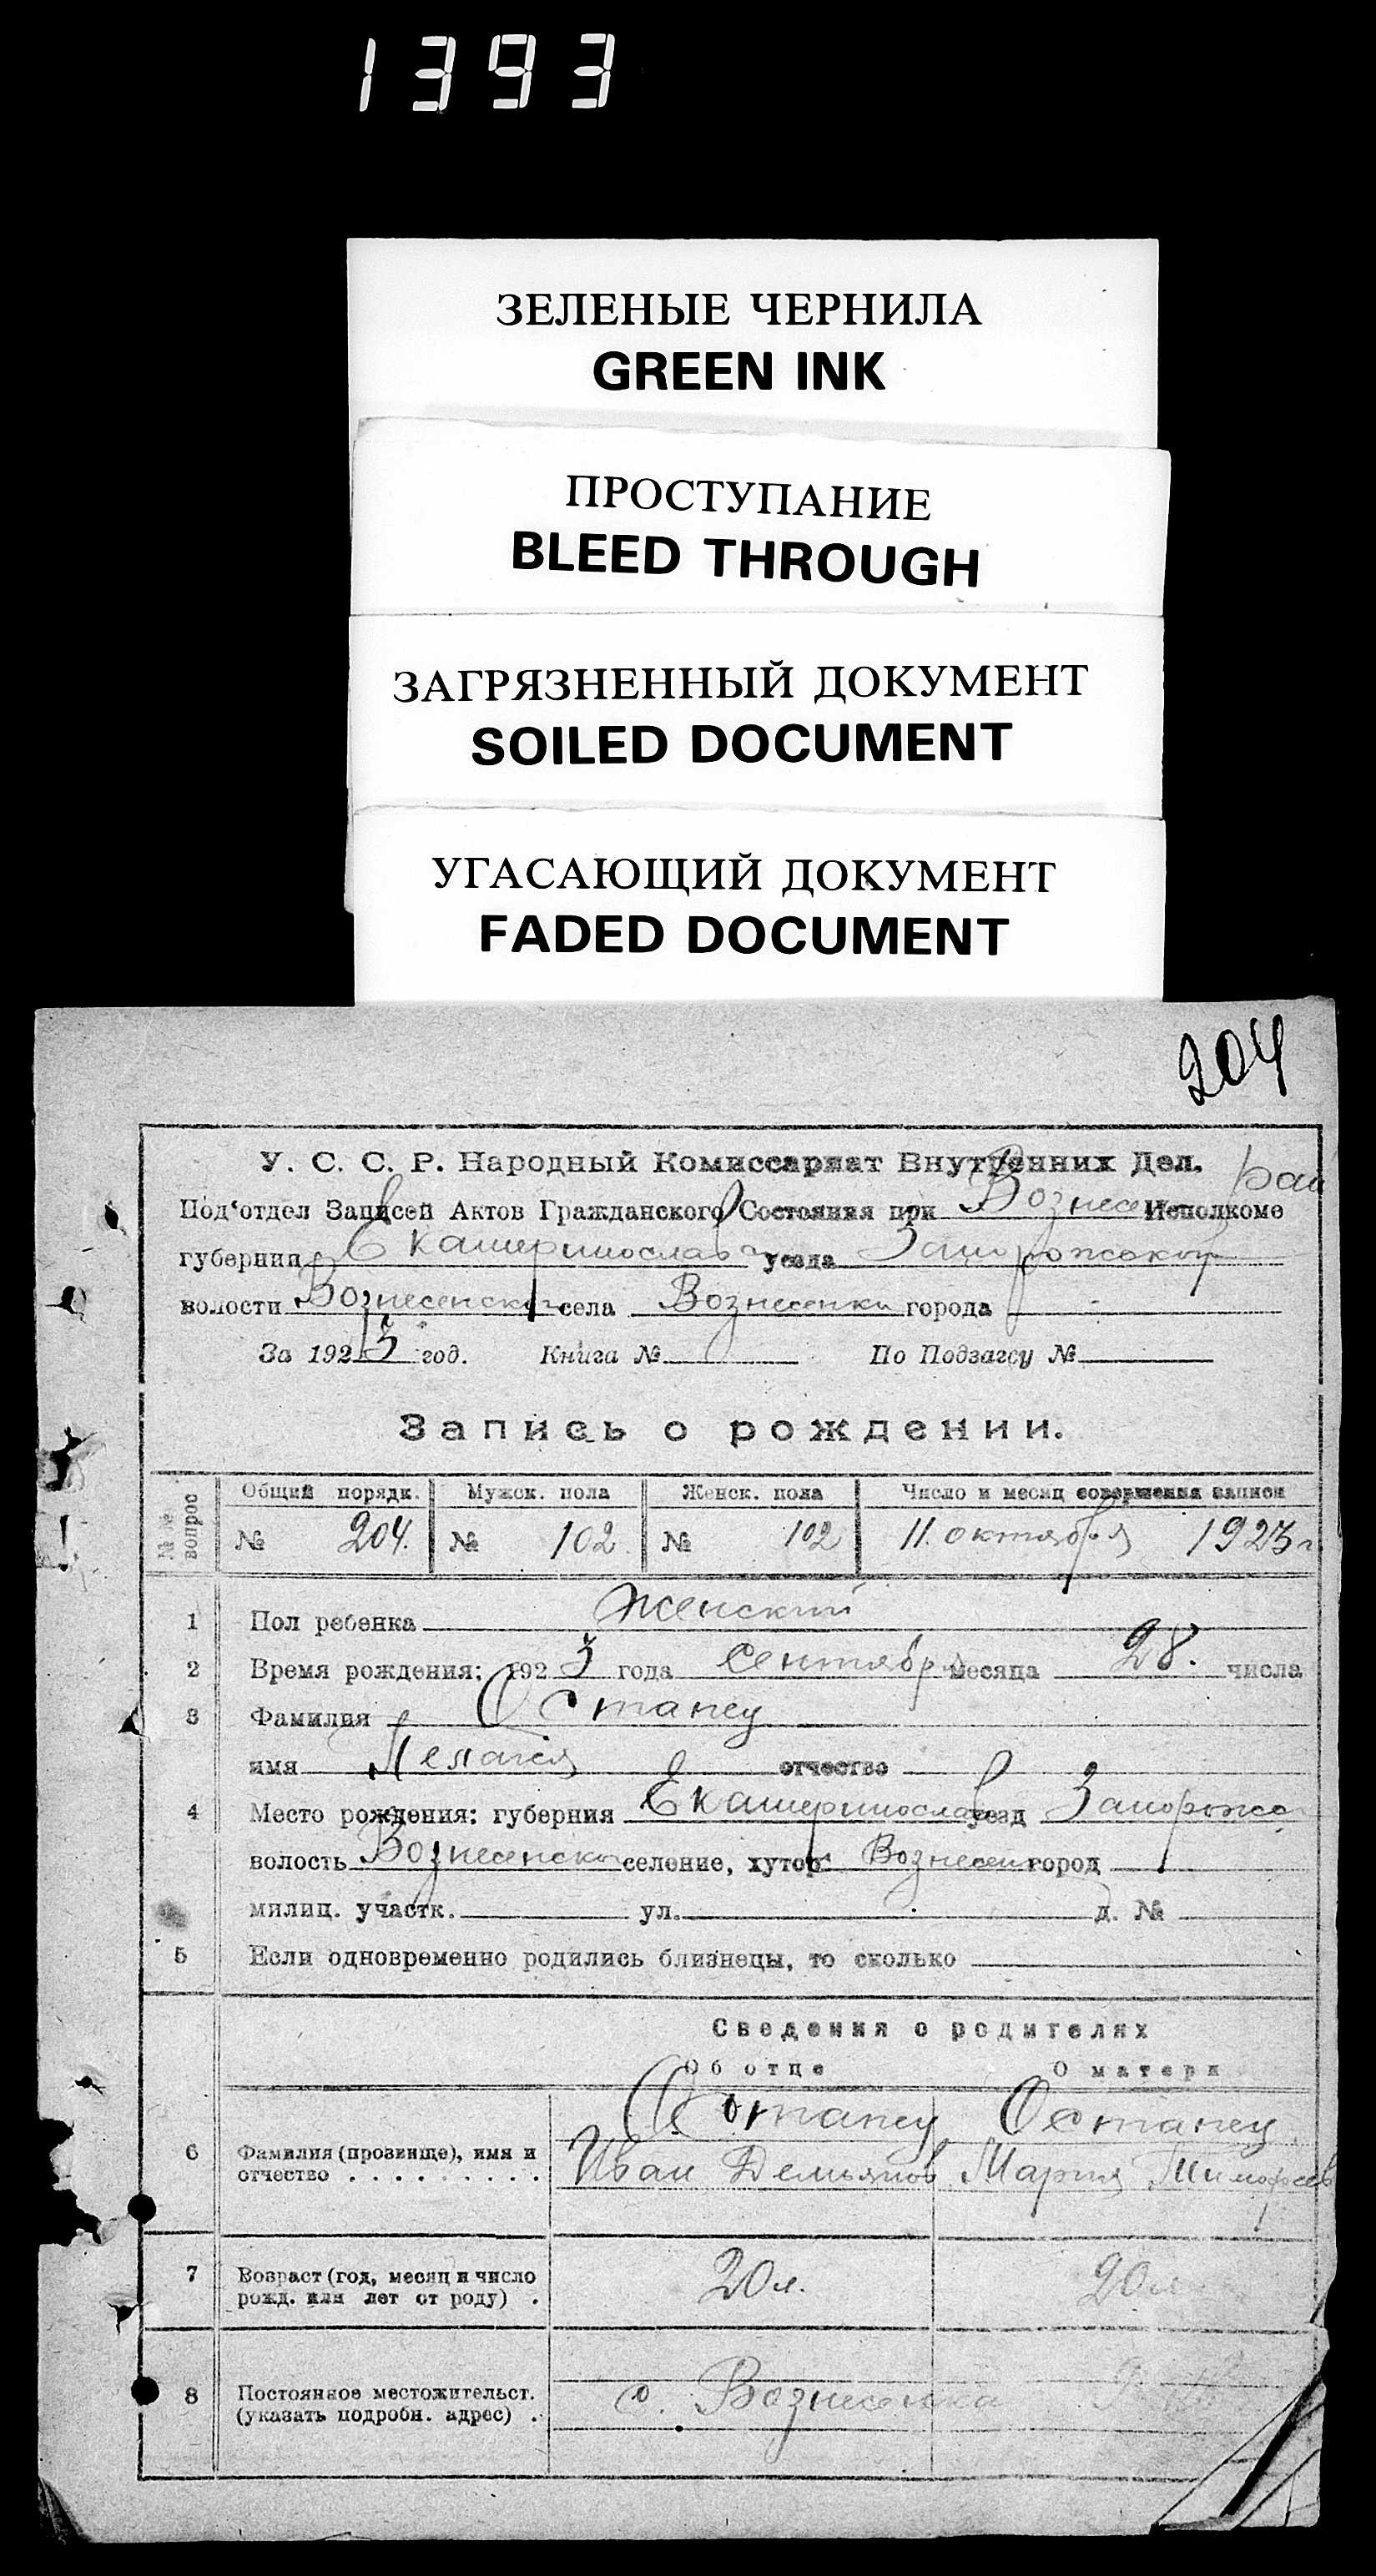 1393
ЗЕЛЕНЫЕ ЧЕРНИЛА
GREEN INK
ПРОСТУПАНИЕ
BLEED THROUGH
ЗАГРЯЗНЕННЫЙ ДОКУМЕНТ
SOILED DOCUMENT
УГАСАЮЩИЙ ДОКУМЕНТ
FADED DOCUMENT
204
У. С. С. Р. Народный Комиссариат Внутренних Дел.
Под'отдел Записей Актов Гражданского Состояния при Вознесен Исполкоме
губернии Екатеринослав уезда Запорожского
волости Вознесенской села Вознесенки города
За 1923 год. Книга № По Подзагсу №
Запись о рождении.
№№ вопрос
Общий порядк. Мужск. пола Женск. пола Число и месяц совершения записи
№ 204. № 102 № 102 11 октября 1923 г
1 Пол ребенка женский
2 Время рождения: 1923 года сентября месяца 28. числа
3 Фамилия Остапец
имя Пелагея отчество
4 Место рождения: губерния Екатеринослав уезд Запорожс
волость Вознесенско селение, хутор Вознесен город
милиц. участк. ул. д. №
5 Если одновременно родились близнецы, то сколько
Сведения о родителях
Об отце О матери
Остапец Остапец
6 Фамилия (прозвище), имя и
отчество . . . . . . . . .
Иван Демьянов Мария Тимофеев
7 Возраст (год, месяц и число
рожд. или лет от роду) .
20 л. 20 л
8 Постоянное местожительст.
(указать подробн. адрес) .
с. Вознесенка